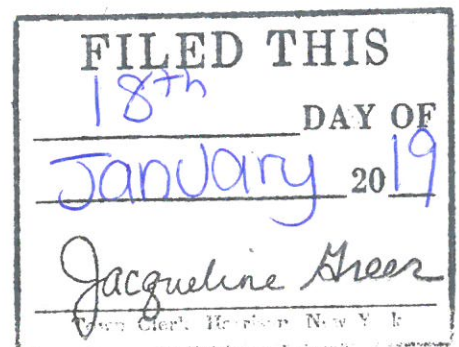 FILED THIS
18th
DAY OF
January 2019
Jacqueline Greer
Town Clerk, Harrison, New York